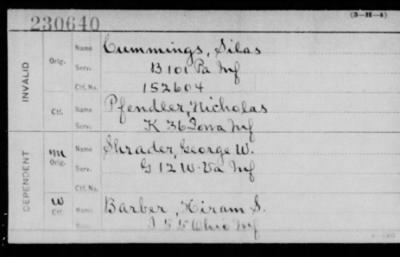 230640
(3-H-4)
INVALID
Orig.
Name
Cummings, Silas
Serv.
B 101 Pa Inf
Ctf. No.
152604
Ctf.
Name
Pfendler, Nicholas
Serv.
K 36 Iowa Inf
DEPENDENT
m
Orig.
Name
Shrader, George W.
Serv.
G 12 W. Va Inf
Ctf. No.
W
Ctf.
Name
Barber, Hiram S.
Serv.
Ohio Inf